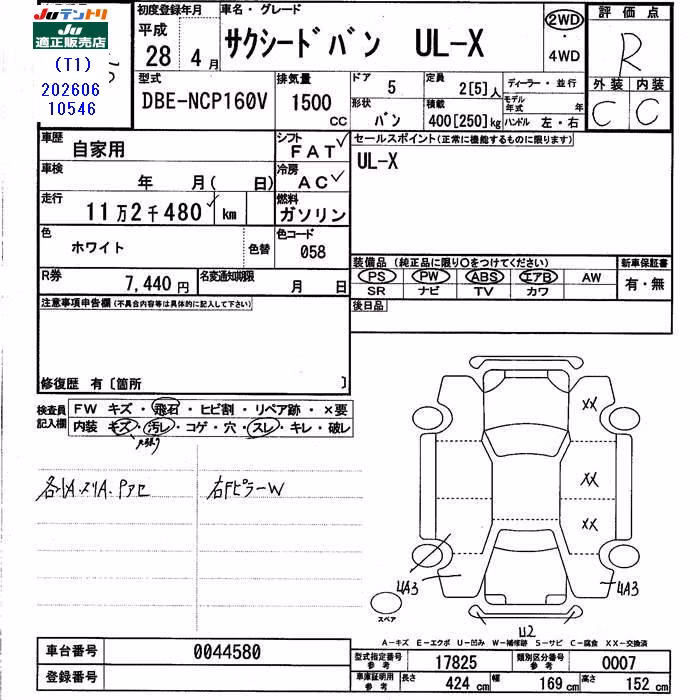 JUテントリ
JU
適正販売店
(T1)
202606
10546
初度登録年月
平成
28 4 月
車名・グレード
サクシードバン UL-X
2WD
・
4WD
評価点
R
外装 内装
C C
型式
DBE-NCP160V
排気量
1500
CC
ドア
5
定員
2[5]人
形状
バン
積載
400[250]kg
ディーラー・並行
モデル
年式 年
ハンドル 左・右
車歴
自家用
シフト
FAT
セールスポイント(正常に機能するものに限ります)
UL-X
車検
年 月( 日)
冷房
AC
走行
11万2千480 km
燃料
ガソリン
色
ホワイト
色替
色コード
058
装備品(純正品に限り○をつけてください)
PS PW ABS エアB AW
SR ナビ TV カワ
新車保証書
有・無
R券
7,440円
名変通知期限
月 日
後日品
注意事項申告欄(不具合内容等は具体的に記入して下さい)
修復歴 有〔箇所 〕
検査員
記入欄
FW キズ・飛石・ヒビ割・リペア跡・×要
内装 キズ・汚レ・コゲ・穴・スレ・キレ・破レ
各IA.メリA.Pアセ
右FピラーW
XX
XX
XX
4A3
4A3
U2
スペア
A-キズ E-エクボ U-凹み W-補修跡 S-サビ C-腐食 XX-交換済
車台番号
0044580
登録番号
型式指定番号
参考
17825
類別区分番号
参考
0007
車庫証明用
参考
長さ 424 cm
幅 169 cm
高さ 152 cm